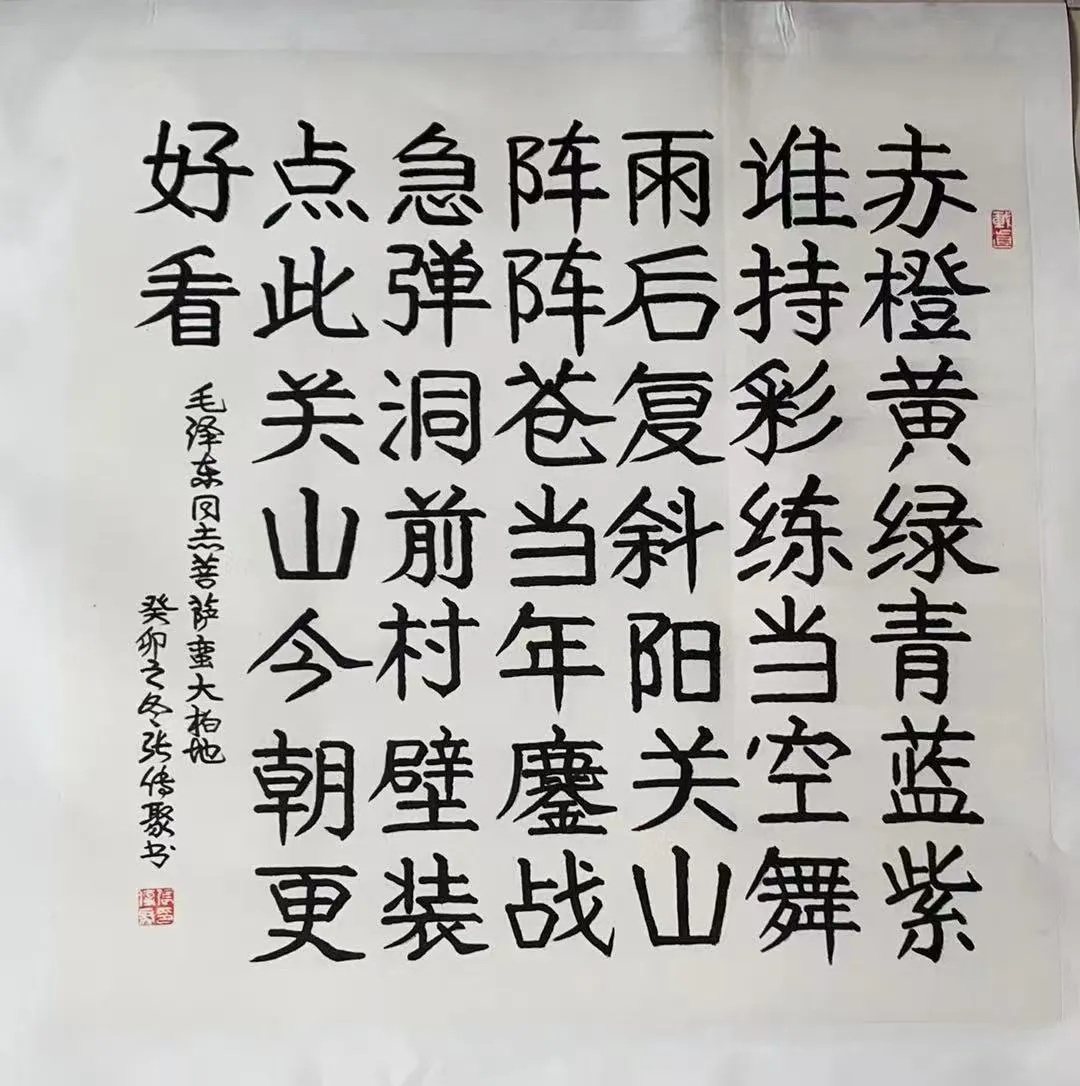 赤橙黄绿青蓝紫
谁持彩练当空舞
雨后复斜阳关山
阵阵苍当年鏖战
急弹洞前村壁装
点此关山今朝更
好看
毛泽东同志菩萨蛮大柏地
癸卯之冬张传聚书